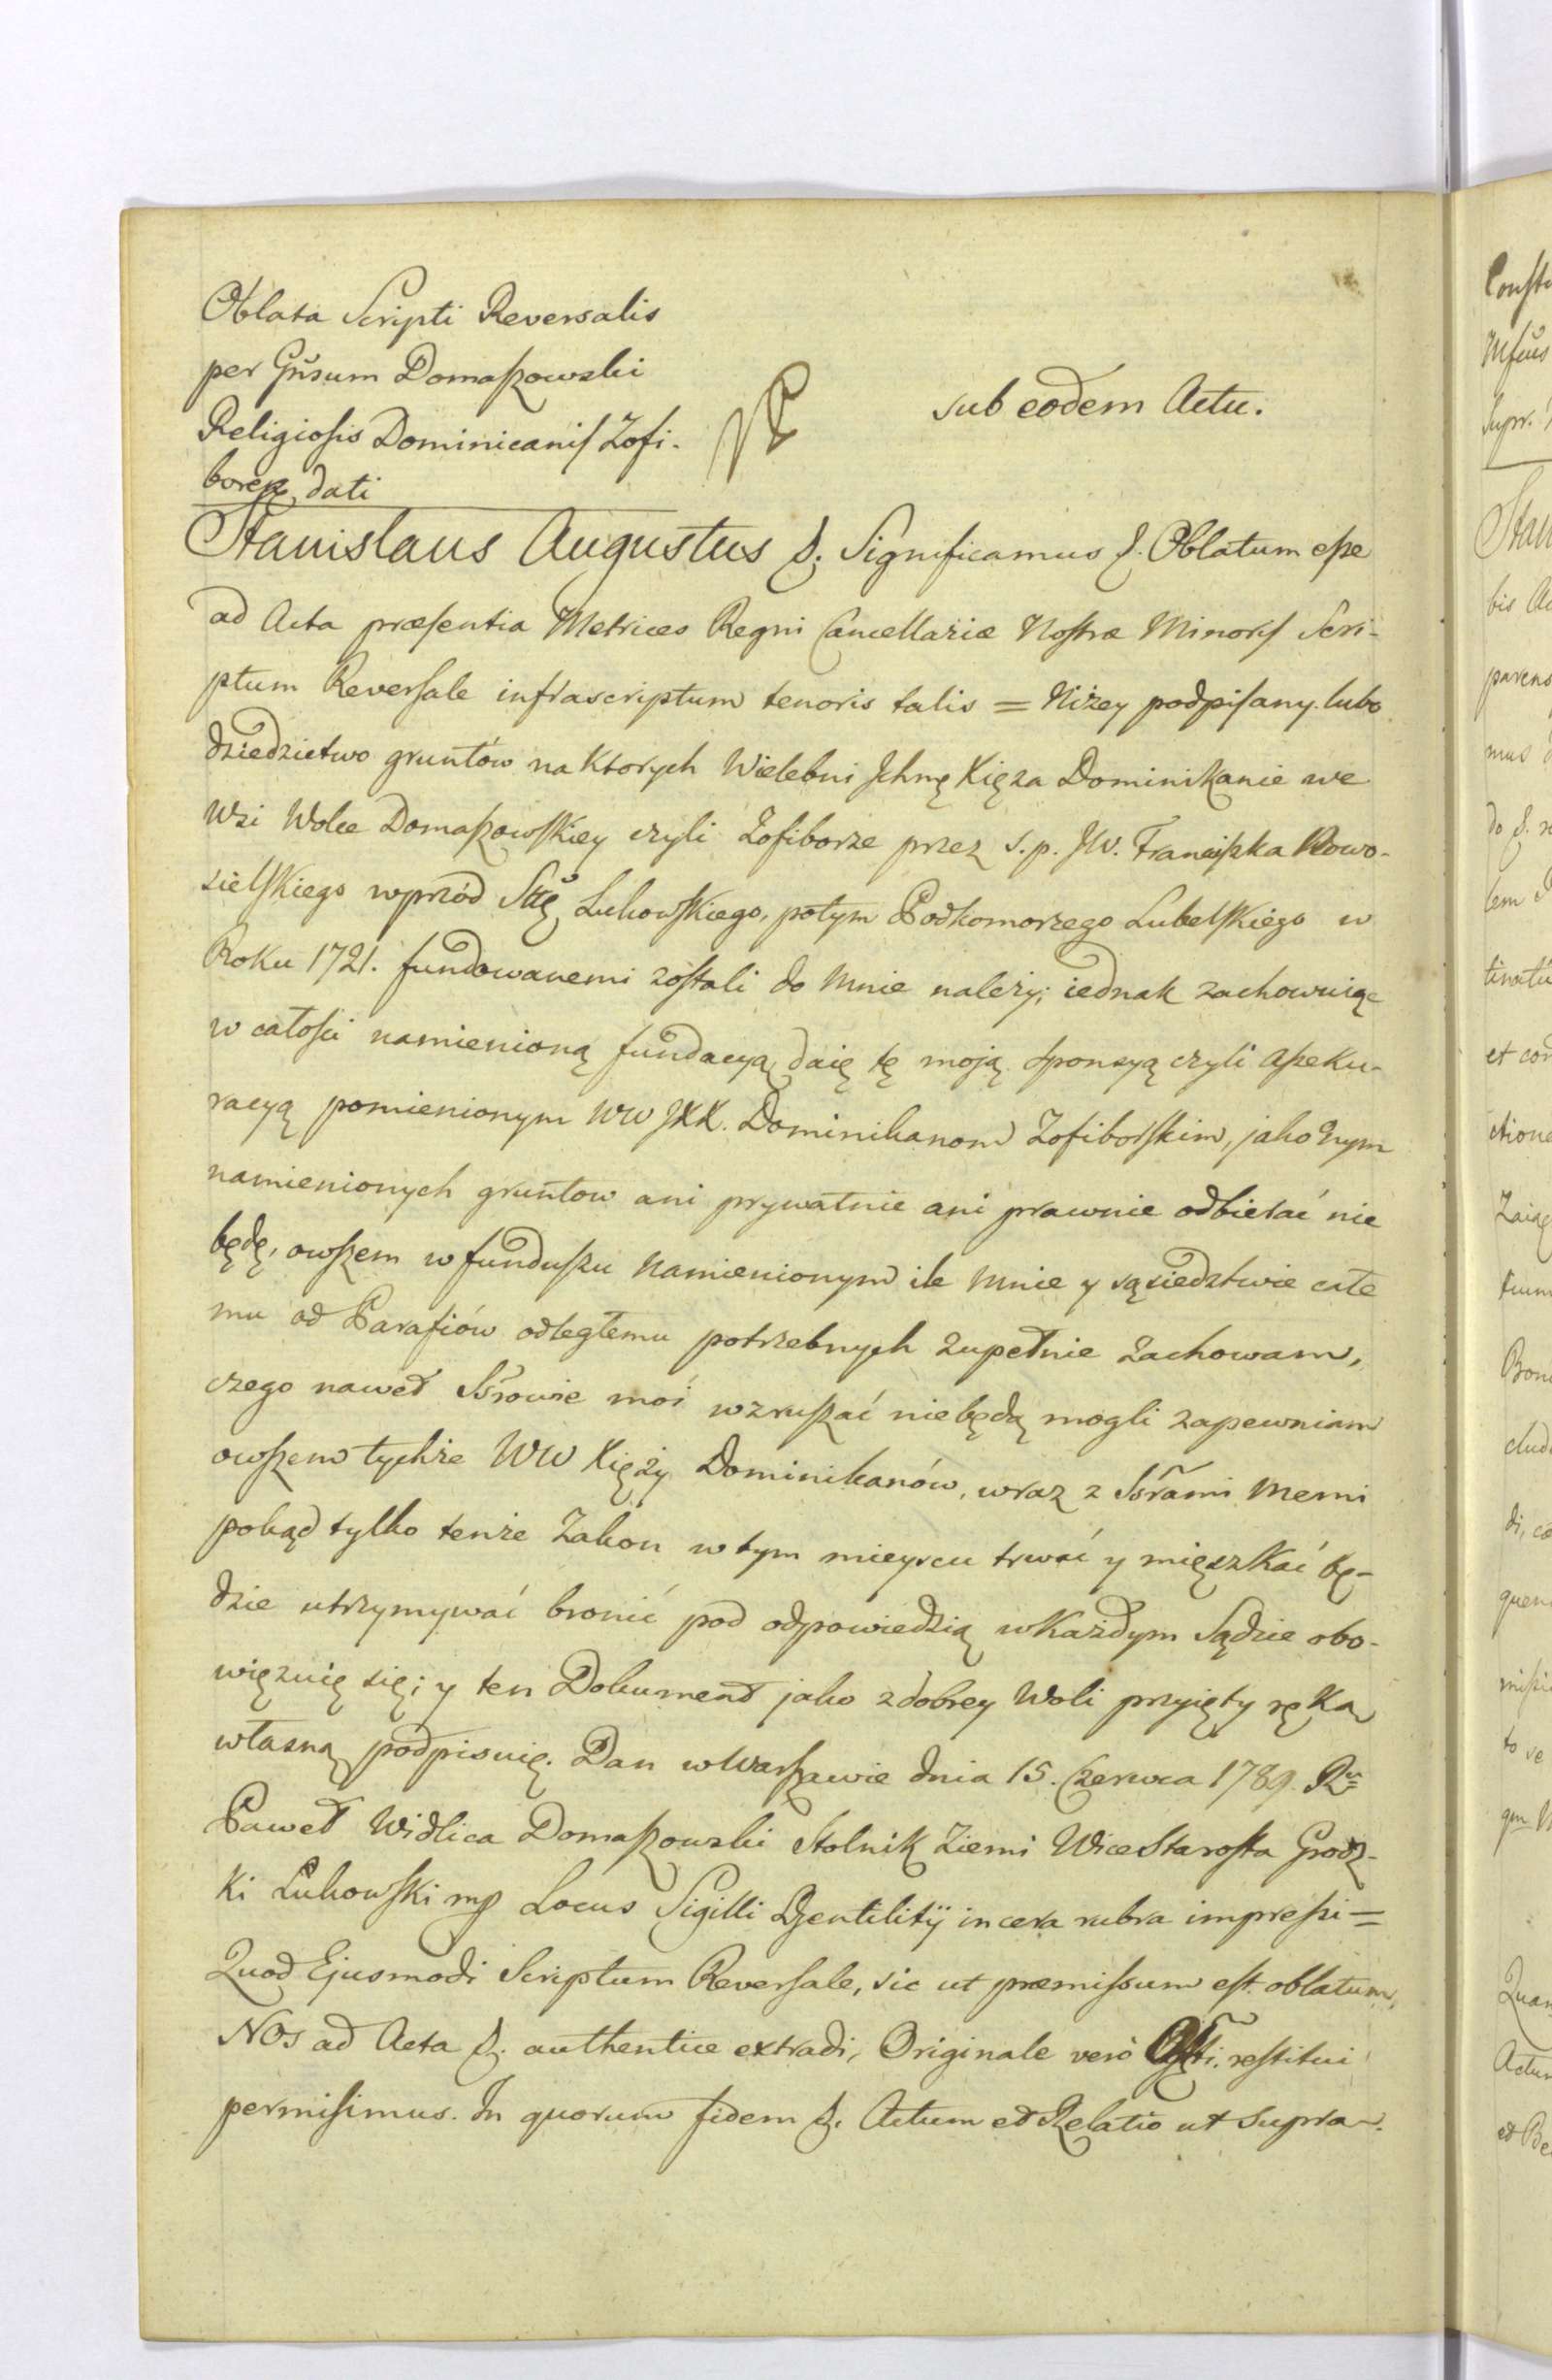 Oblata Scripti Reversalis
per Gñsum Domaszowski
Religiosis Dominicanis Zofi-
borẽsq dati
sub eodem Actu.
Stanislaus Augustus &. Significamus &. Oblatum esse
ad Acta præsentia Metrices Regni Cancellariæ Nostræ Minoris Scri-
ptum Reversale infrascriptum tenoris talis = Niżey podpisany. lubo
dziedzictwo gruntów na ktorych Wielebni Jchmę Xięża Dominikanie we
Wsi Wolce Domaszowskiey czyli Zofiborze przez s. p. JW. Franciszka Nowo-
sielskiego wprzód Sttę Łukowskiego, potym Podkomorzego Lubelskiego w
Roku 1721. fundowanemi zostali do mnie należy; iednak zachowuiąc
w całości namienioną fundacyą daię tę moją sponsyą czyli asseku-
racyą pomienionym WW JXX. Dominikanom Zofiborskim, jako Jnym
namienionych gruntow ani prywatnie ani prawnie odbierać nie
będę, owszem w funduszu namienionym ile mnie y sąsiedztwie całe
mu od Parafiów odległemu potrzebnych zupełnie zachowam,
czego nawet Sśrowie moi wzruszać niebędą mogli zapewniam
owszem tychże WW Xięży Dominikanów, wraz z Sśrami memi
pokąd tylko tenże Zakon w tym mieyscu trwać y mięszkać bę-
dzie utrzymywać bronić pod odpowiedzią w każdym Sądzie obo-
więzuię się; y ten Dokument jako z dobrey Woli przyięty ręką
własną podpisuię. Dan w Warszawie dnia 15. Czerwca 1789. Ru
Paweł Widlica Domaszowski Stolnik Ziemi WiceStarosta Grodz-
ki Łukowski mp Locus Sigilli Gentilitÿ in cera rubra impressi =
Quod Ejusmodi Scriptum Reversale, sic ut præmissum est. oblatum,
NOS ad Acta &. authentice extradi, Originale verò restitui
permisimus. In quorum fidem &. Actum et Relatio ut supra.